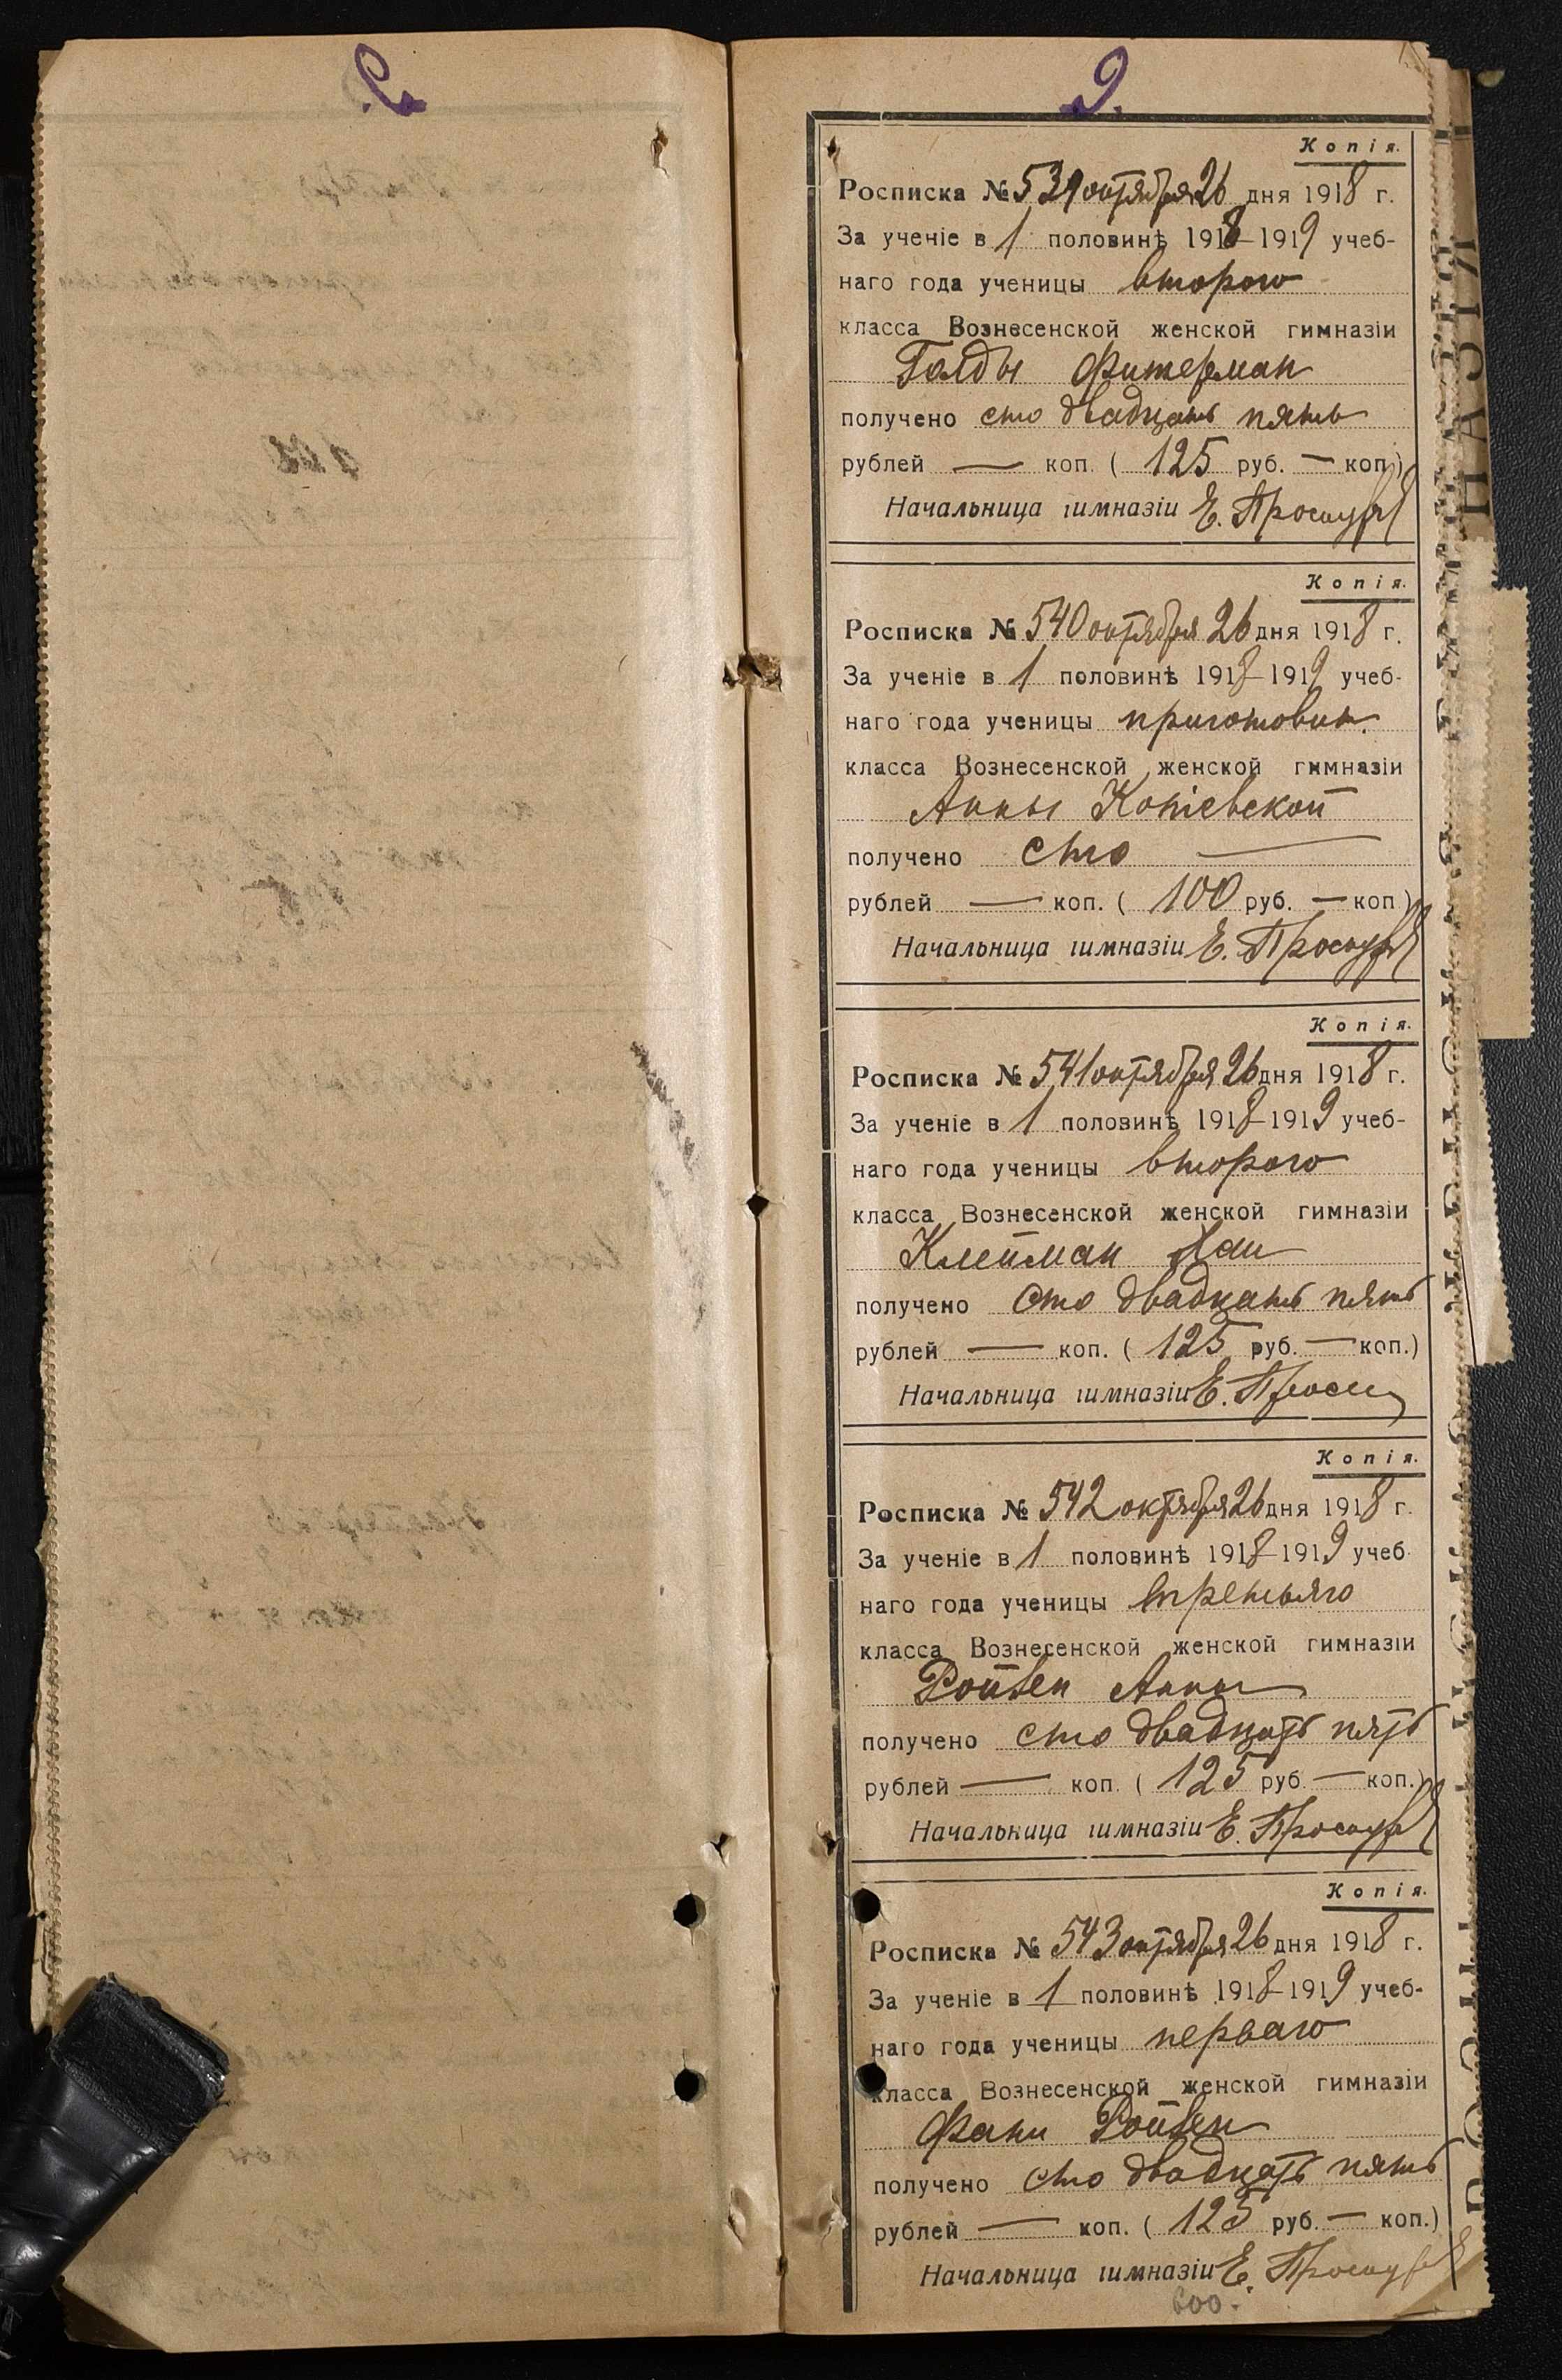 9.
Копія.
Росписка № 539 октября 26 дня 1918 г.
За ученіе в 1 половинѣ 1918-1919 учеб-
наго года ученицы второго
класса Вознесенской женской гимназіи
Голды Фитерман
получено сто двадцать пять
рублей — коп. ( 125 руб. — коп.)
Начальница гимназіи Е.
Копія.
Росписка № 540 октября 26 дня 1918 г.
За ученіе в 1 половинѣ 1918-1919 учеб-
наго года ученицы приготовит.
класса Вознесенской женской гимназіи
Анны Копіевской
получено сто —
рублей — коп. ( 100 руб. — коп.)
Начальница гимназіи Е.
Копія.
Росписка № 541 октября 26 дня 1918 г.
За ученіе в 1 половинѣ 1918-1919 учеб-
наго года ученицы второго
класса Вознесенской женской гимназіи
Клейман
получено сто двадцать пять
рублей — коп. ( 125 руб. — коп.)
Начальница гимназіи Е.
Копія.
Росписка № 542 октября 26 дня 1918 г.
За ученіе в 1 половинѣ 1918-1919 учеб
наго года ученицы третьяго
класса Вознесенской женской гимназіи
Ройзен Анны
получено сто двадцать пять
рублей — коп. ( 125 руб. — коп.)
Начальница гимназіи Е.
Копія.
Росписка № 543 октября 26 дня 1918 г.
За ученіе в 1 половинѣ 1918-1919 учеб-
наго года ученицы перваго
класса Вознесенской женской гимназіи
Фани Ройзен
получено сто двадцать пять
рублей — коп. ( 125 руб. — коп.)
Начальница гимназіи Е.
600.